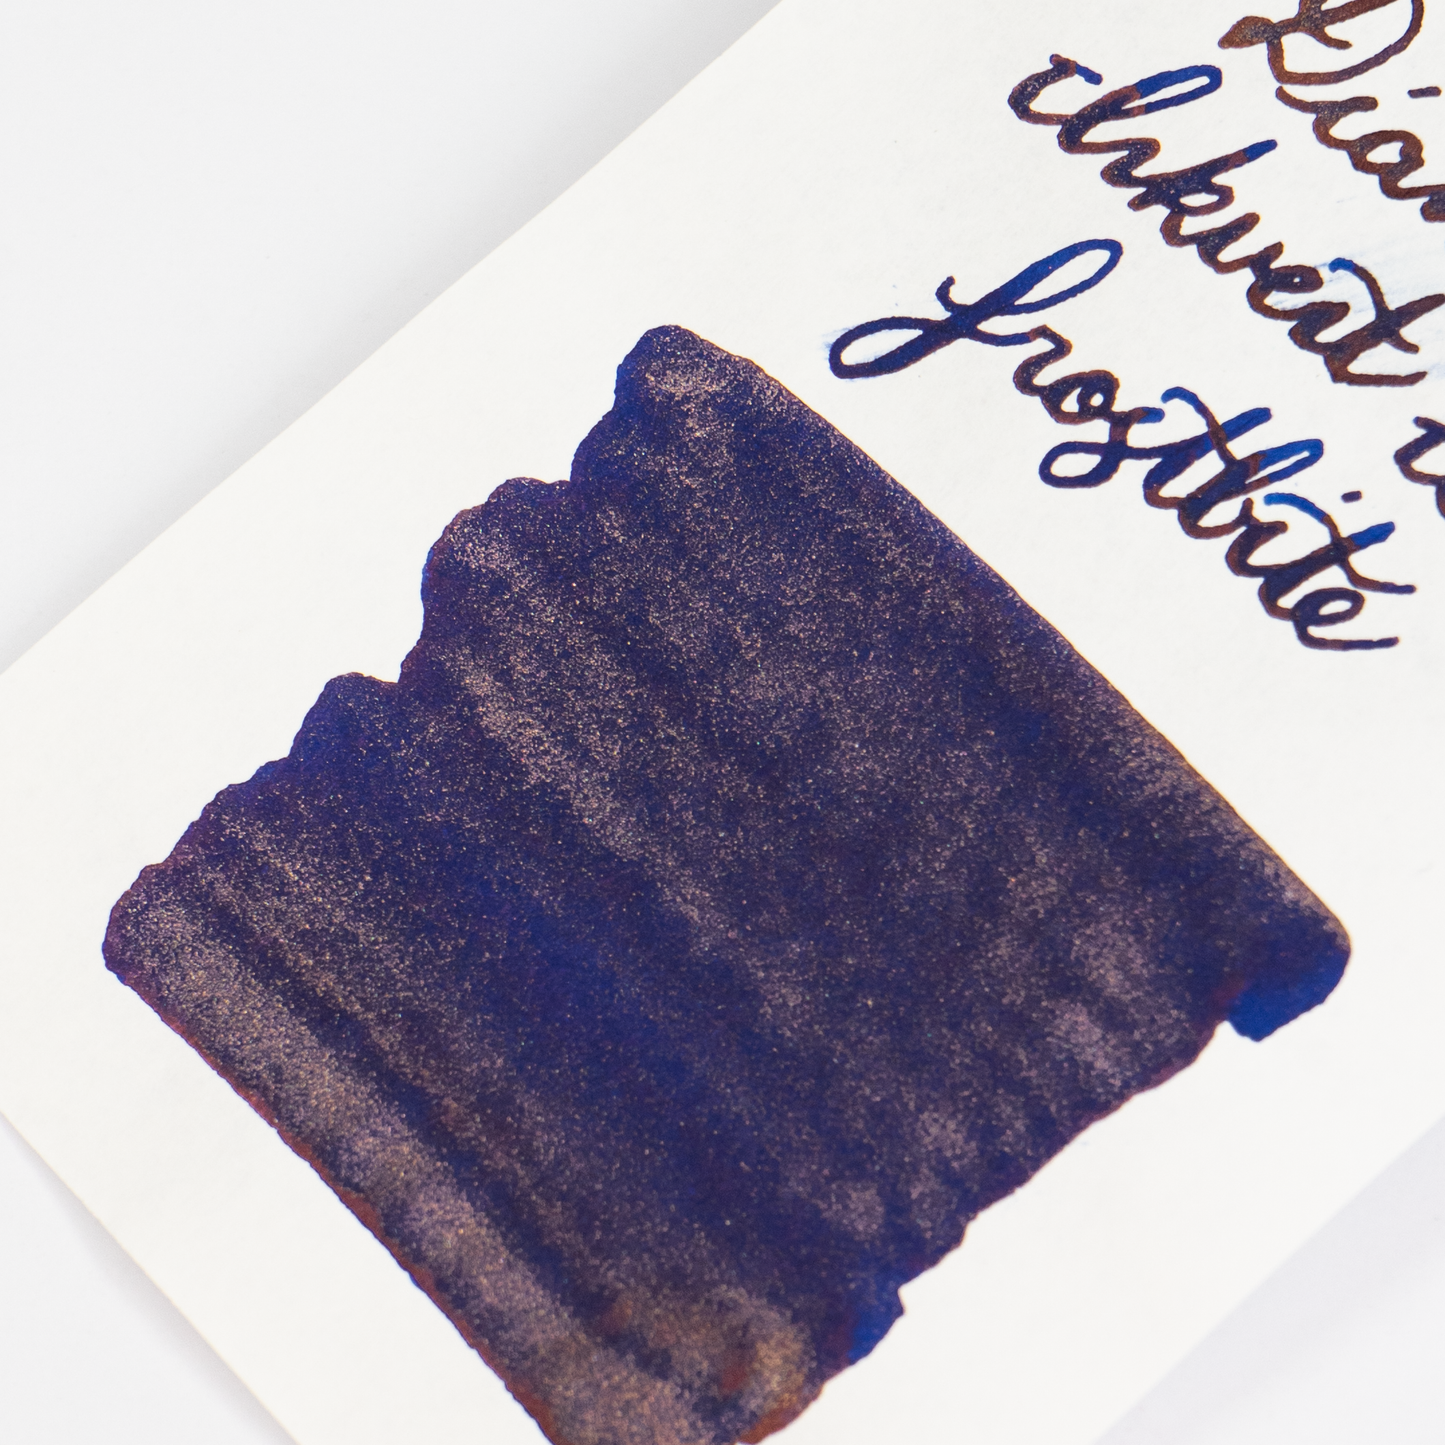 Diam
inkvent
frostbite